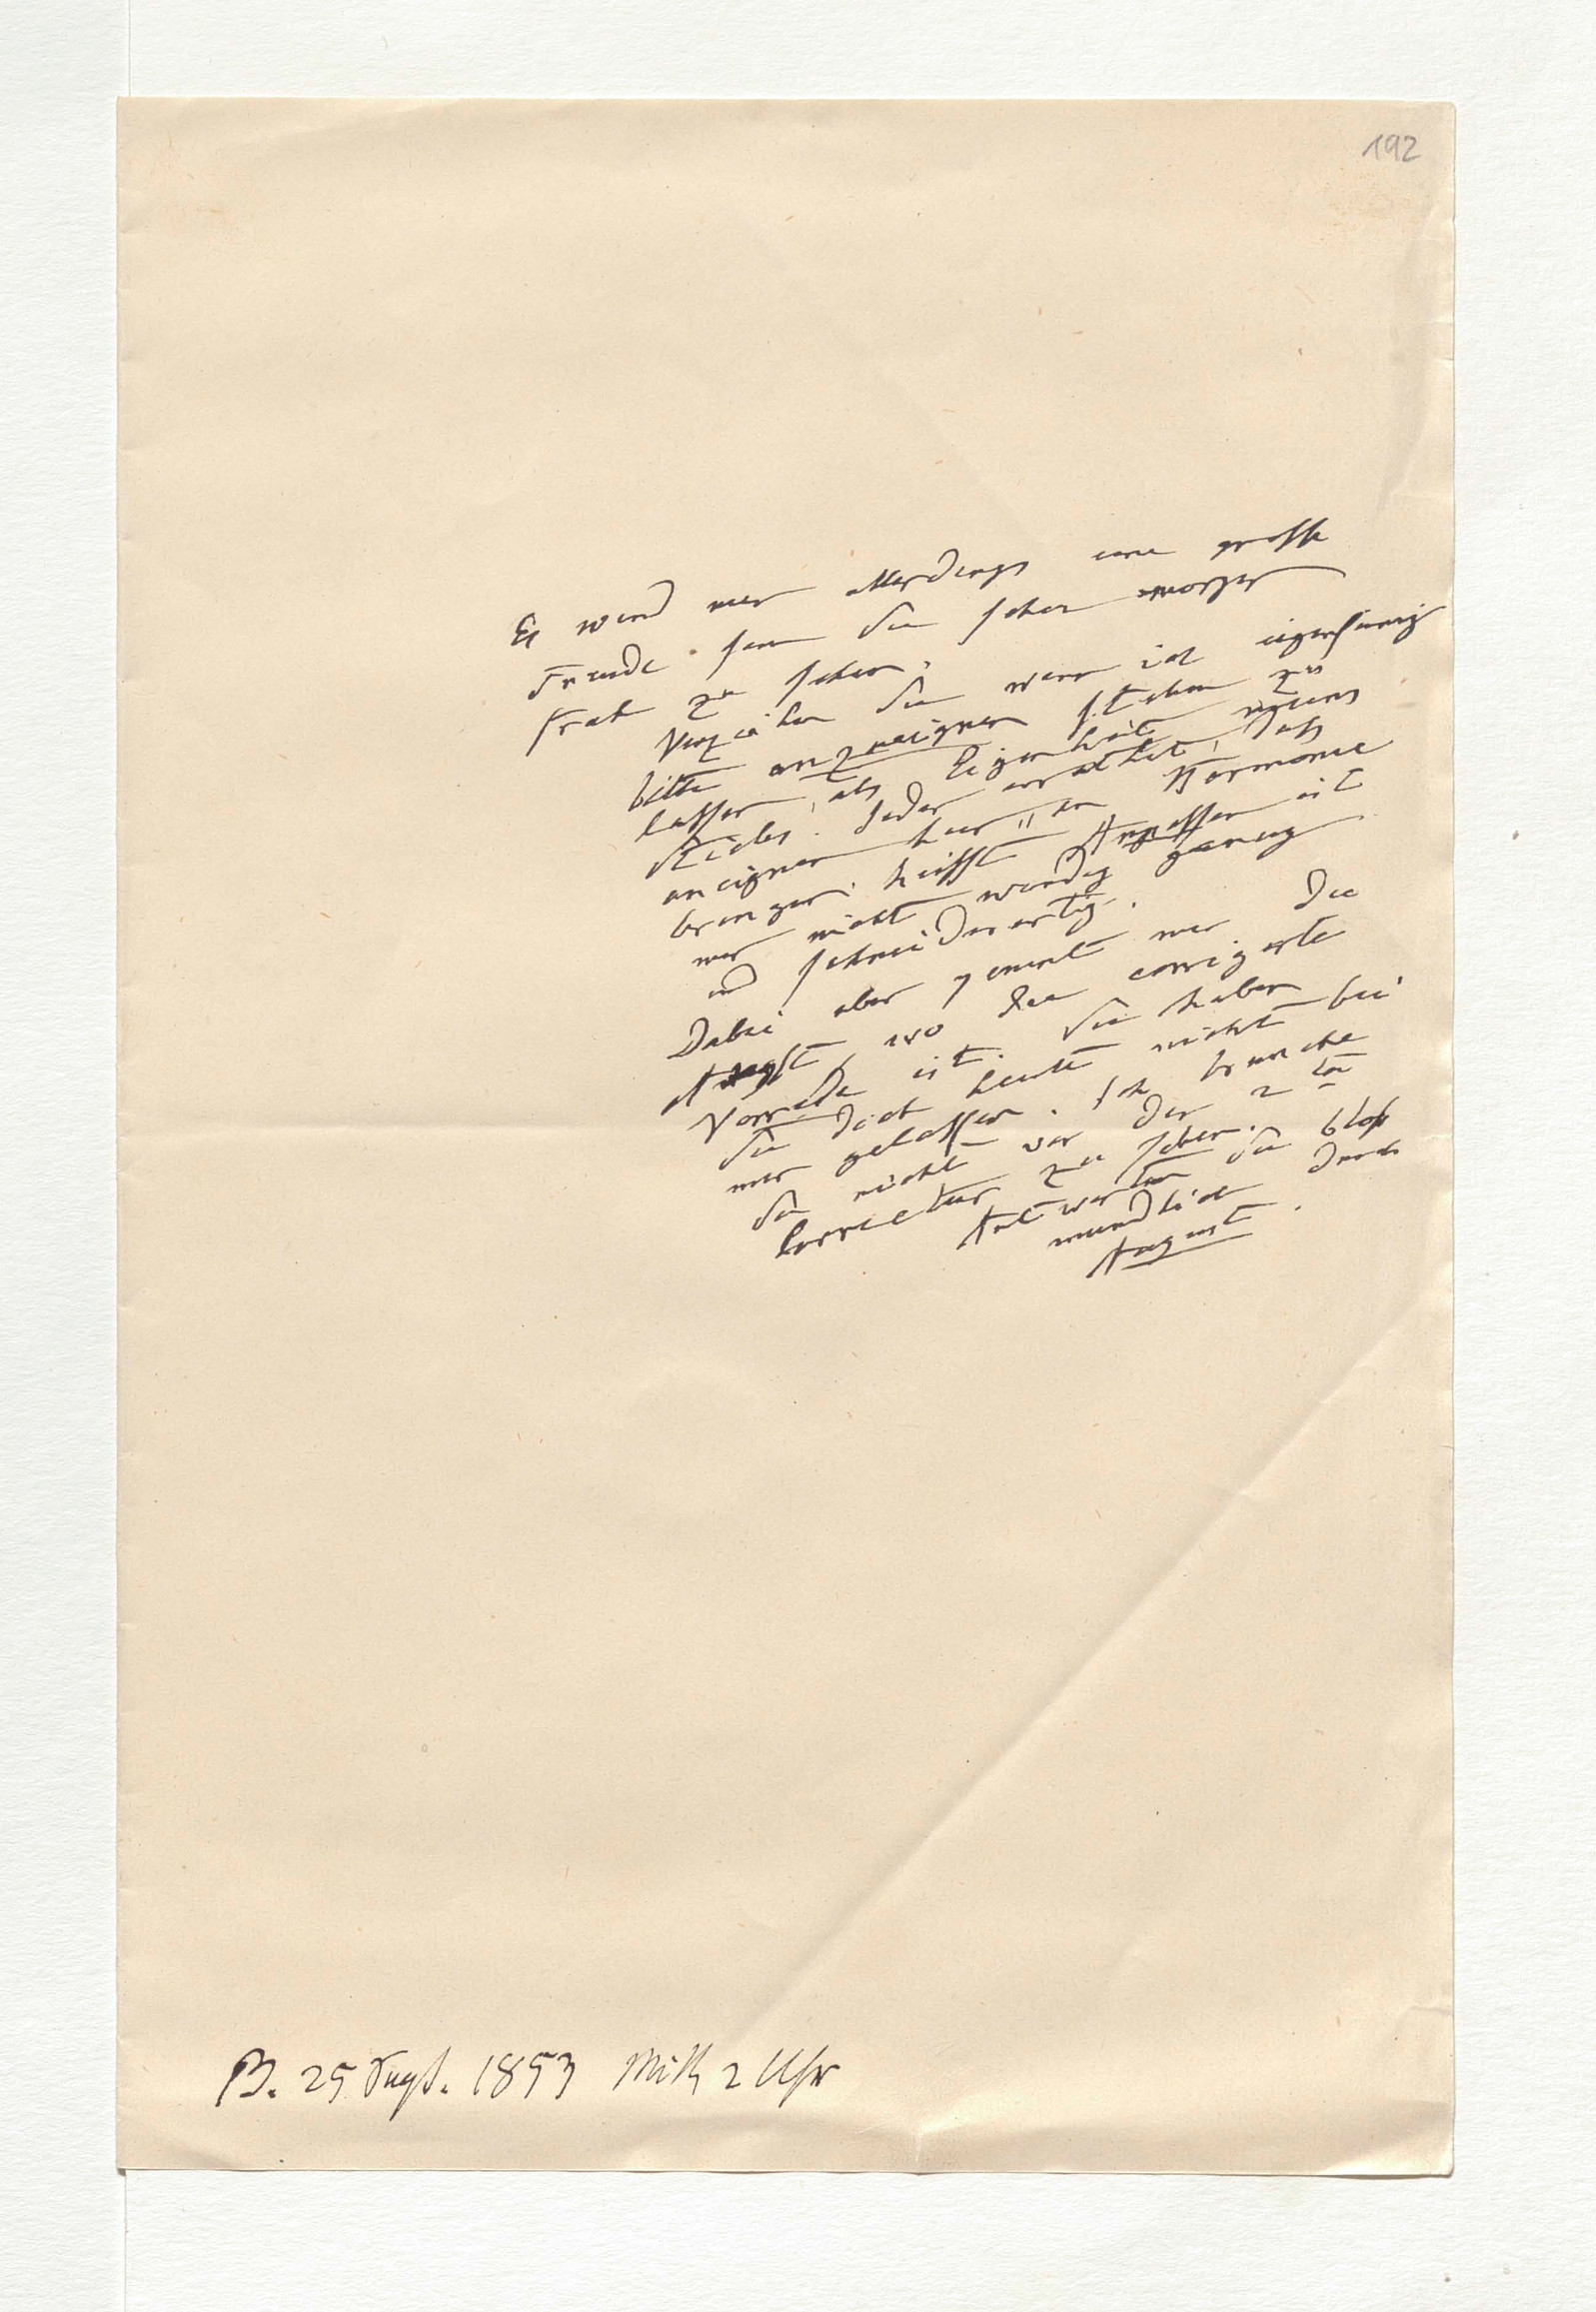 192
Es wird mir allerdings eine grosse
Freude sein Sie schon morgen
früh zu sehen.
Verzeihen Sie wenn ich eigensinnig
bitte anzueignen stehen zu
lassen, als Eigenheit meines
Stieles. Jeder errathet, dass
aneignen hier "in Harmonie
bringen" heisst Anpassen ist
mir nicht würdig genug
und schneiderartig.
Dabei aber zeiht mir die
Angst, wo die corrigirte
Vorrede ist. Sie haben
Sie doch heute nicht bei
mir gelassen. Ich brauche
Sie nicht vor der 2ten
Correctur zu sehen.
Antworten Sie blos
mündlich durch
August.
B. 25 Augst. 1853 Mitt 2 Uhr